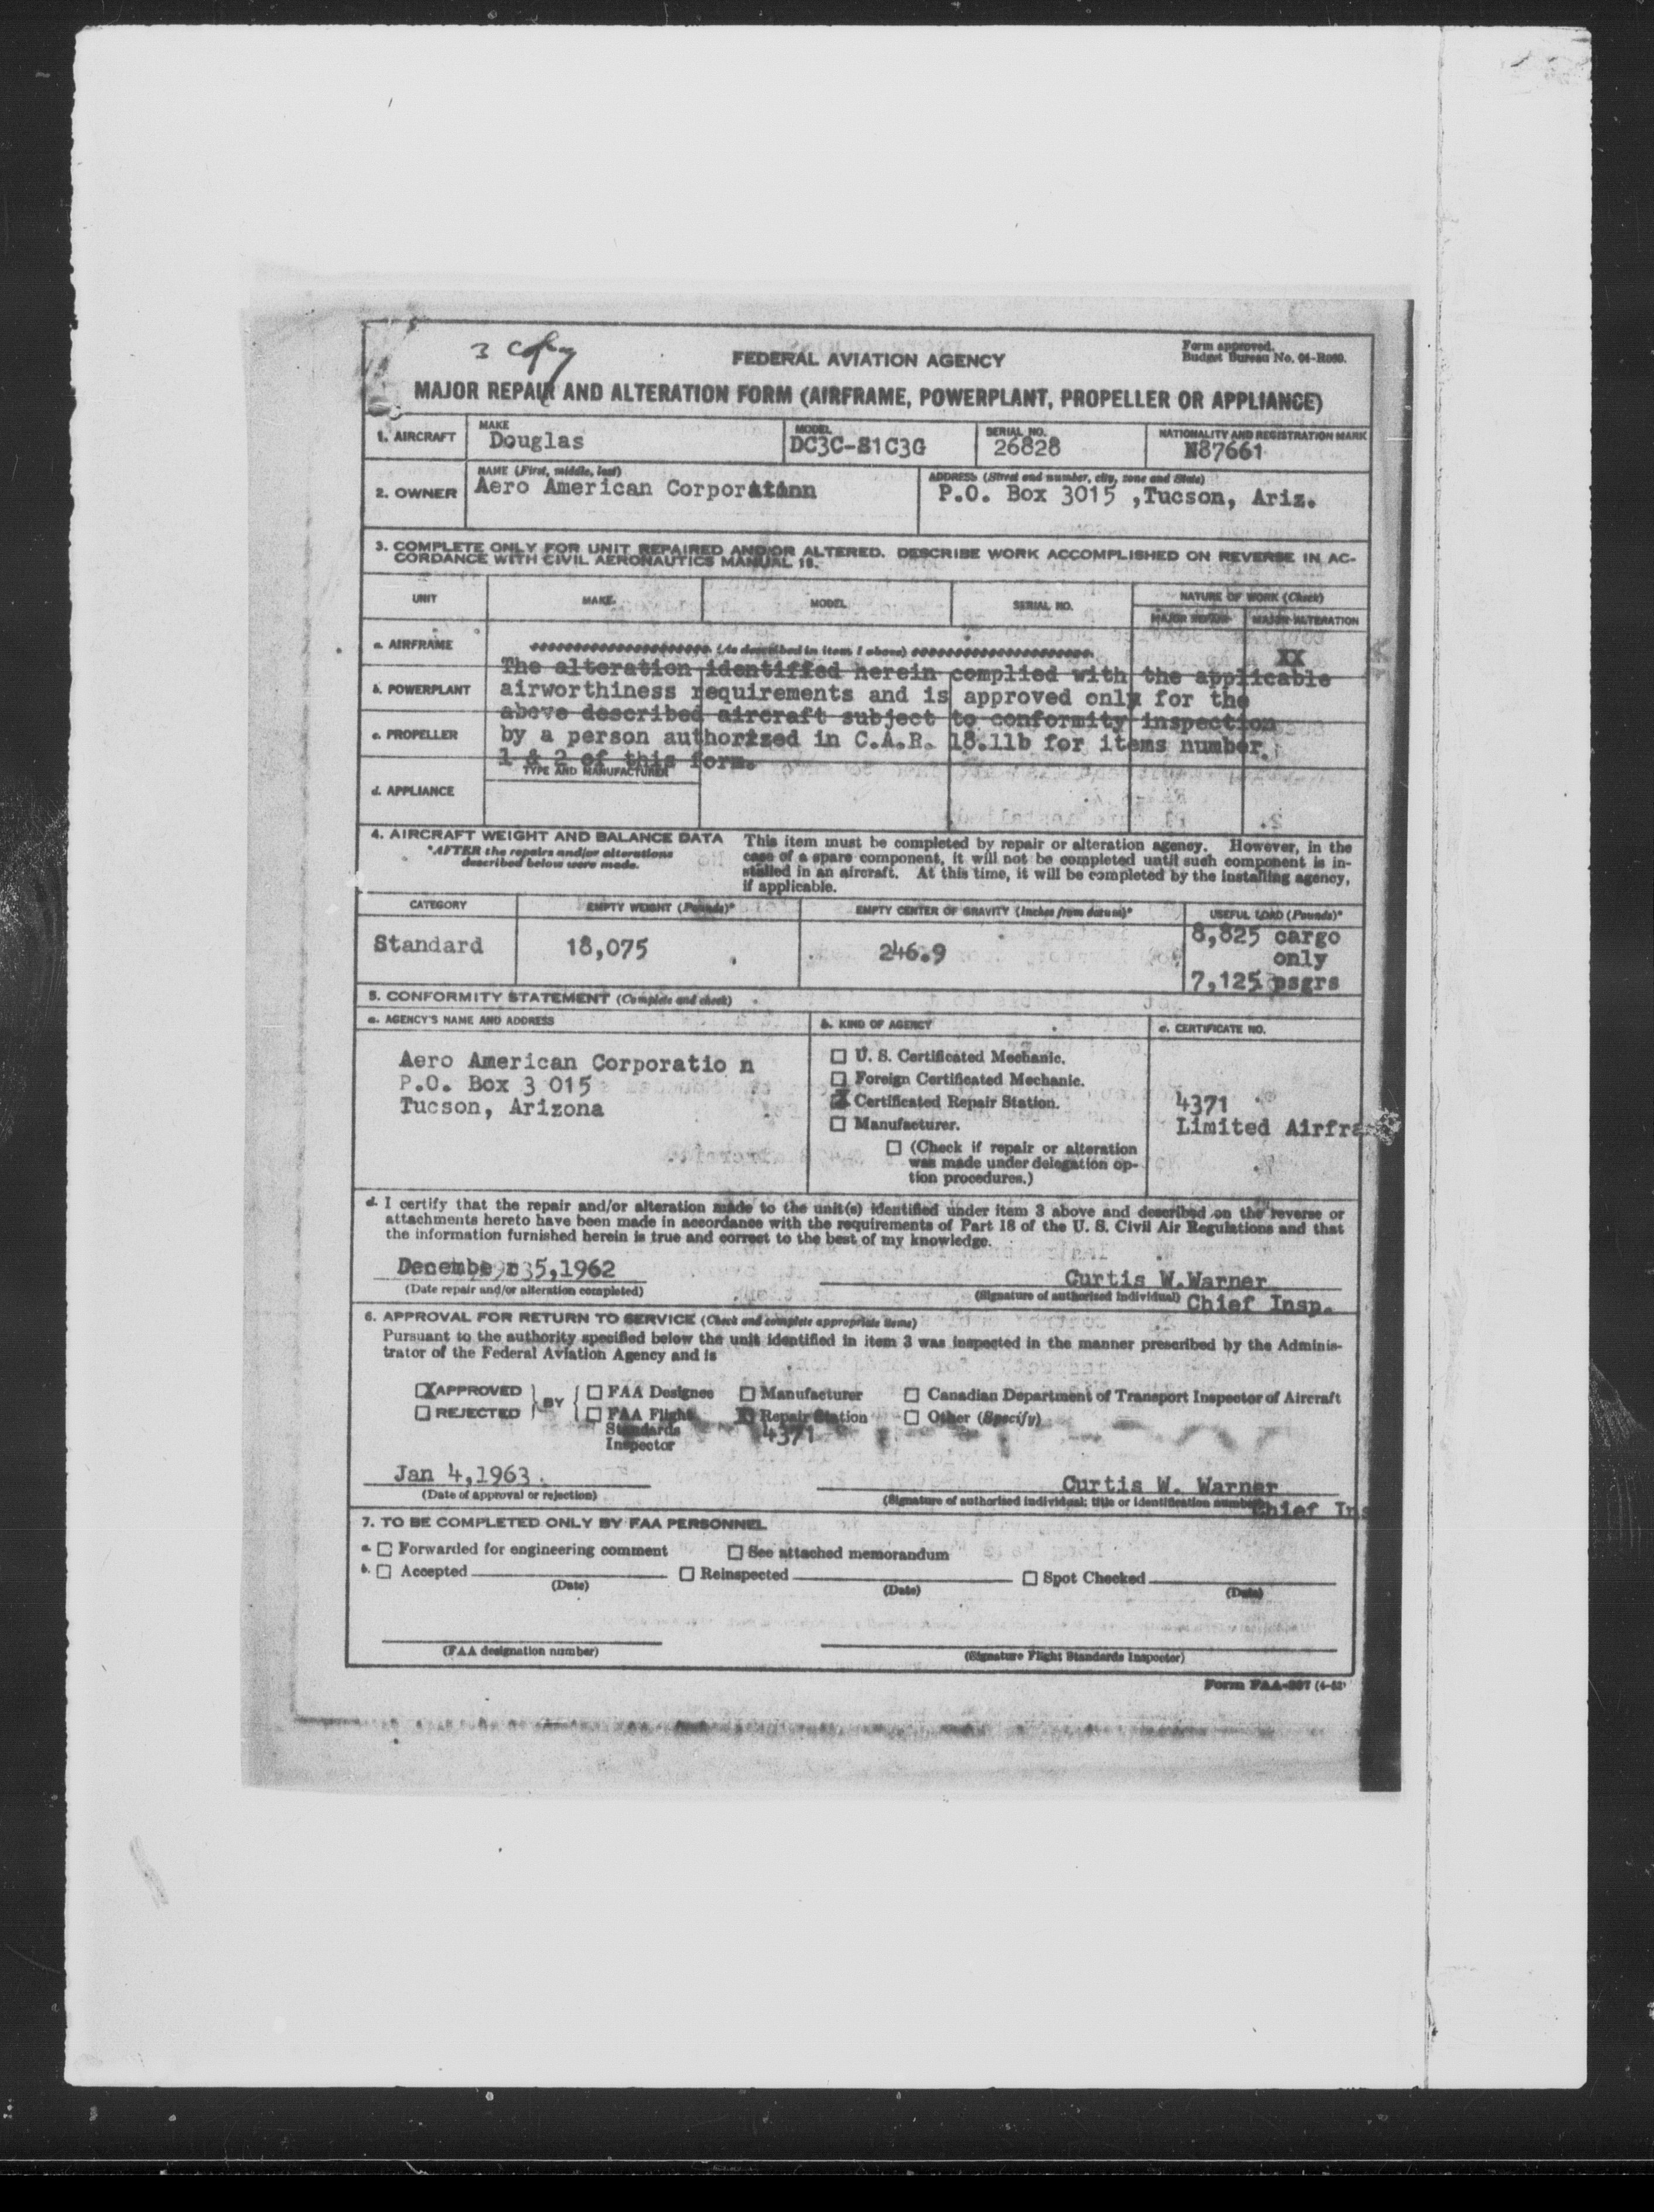 3 Copy
FEDERAL AVIATION AGENCY
Form approved.
Budget Bureau No. 04-R060.
MAJOR REPAIR AND ALTERATION FORM (AIRFRAME, POWERPLANT, PROPELLER OR APPLIANCE)
1. AIRCRAFT
MAKE
Douglas
MODEL
DC3C-S1C3G
SERIAL NO.
26828
NATIONALITY AND REGISTRATION MARK
N87661
2. OWNER
NAME (First, middle, last)
Aero American Corporation
ADDRESS (Street and number, city, zone and State)
P.O. Box 3015 ,Tucson, Ariz.
3. COMPLETE ONLY FOR UNIT REPAIRED AND/OR ALTERED. DESCRIBE WORK ACCOMPLISHED ON REVERSE IN AC-
CORDANCE WITH CIVIL AERONAUTICS MANUAL 18.
UNIT
MAKE
MODEL
SERIAL NO.
NATURE OF WORK (Check)
MAJOR REPAIR
MAJOR ALTERATION
a. AIRFRAME
(As described in item 1 above)
XX
The alteration identified herein complied with the applicable
b. POWERPLANT
airworthiness requirements and is approved only for the
above described aircraft subject to conformity inspection
c. PROPELLER
by a person authorized in C.A.R. 18.11b for items number
1 & 2 of this form.
TYPE AND MANUFACTURER
d. APPLIANCE
4. AIRCRAFT WEIGHT AND BALANCE DATA
*AFTER the repairs and/or alterations
described below were made.
This item must be completed by repair or alteration agency. However, in the
case of a spare component, it will not be completed until such component is in-
stalled in an aircraft. At this time, it will be completed by the installing agency,
if applicable.
CATEGORY
EMPTY WEIGHT (Pounds)*
EMPTY CENTER OF GRAVITY (Inches from datum)*
USEFUL LOAD (Pounds)*
Standard
18,075
246.9
8,825 cargo
only
7,125 psgrs
5. CONFORMITY STATEMENT (Complete and check)
a. AGENCY'S NAME AND ADDRESS
b. KIND OF AGENCY
c. CERTIFICATE NO.
Aero American Corporatio n
P.O. Box 3 015
Tucson, Arizona
U. S. Certificated Mechanic.
Foreign Certificated Mechanic.
X Certificated Repair Station.
Manufacturer.
(Check if repair or alteration
was made under delegation op-
tion procedures.)
4371
Limited Airfra
d. I certify that the repair and/or alteration made to the unit(s) identified under item 3 above and described on the reverse or
attachments hereto have been made in accordance with the requirements of Part 18 of the U. S. Civil Air Regulations and that
the information furnished herein is true and correct to the best of my knowledge.
1962
(Date repair and/or alteration completed)
Curtis W.Warner
(Signature of authorized individual) Chief Insp.
6. APPROVAL FOR RETURN TO SERVICE (Check and complete appropriate items)
Pursuant to the authority specified below the unit identified in item 3 was inspected in the manner prescribed by the Adminis-
trator of the Federal Aviation Agency and is
X APPROVED
REJECTED
BY
FAA Designee
FAA Flight
Standards
Inspector
Manufacturer
X Repair Station
4371
Canadian Department of Transport Inspector of Aircraft
Other (Specify)
Jan 4,1963.
(Date of approval or rejection)
Curtis W. Warner
(Signature of authorized individual; title or identification number)
Chief Ins
7. TO BE COMPLETED ONLY BY FAA PERSONNEL
a. Forwarded for engineering comment
See attached memorandum
b. Accepted
(Date)
Reinspected
(Date)
Spot Checked
(Date)
(FAA designation number)
(Signature Flight Standards Inspector)
Form FAA-337 (4-62)